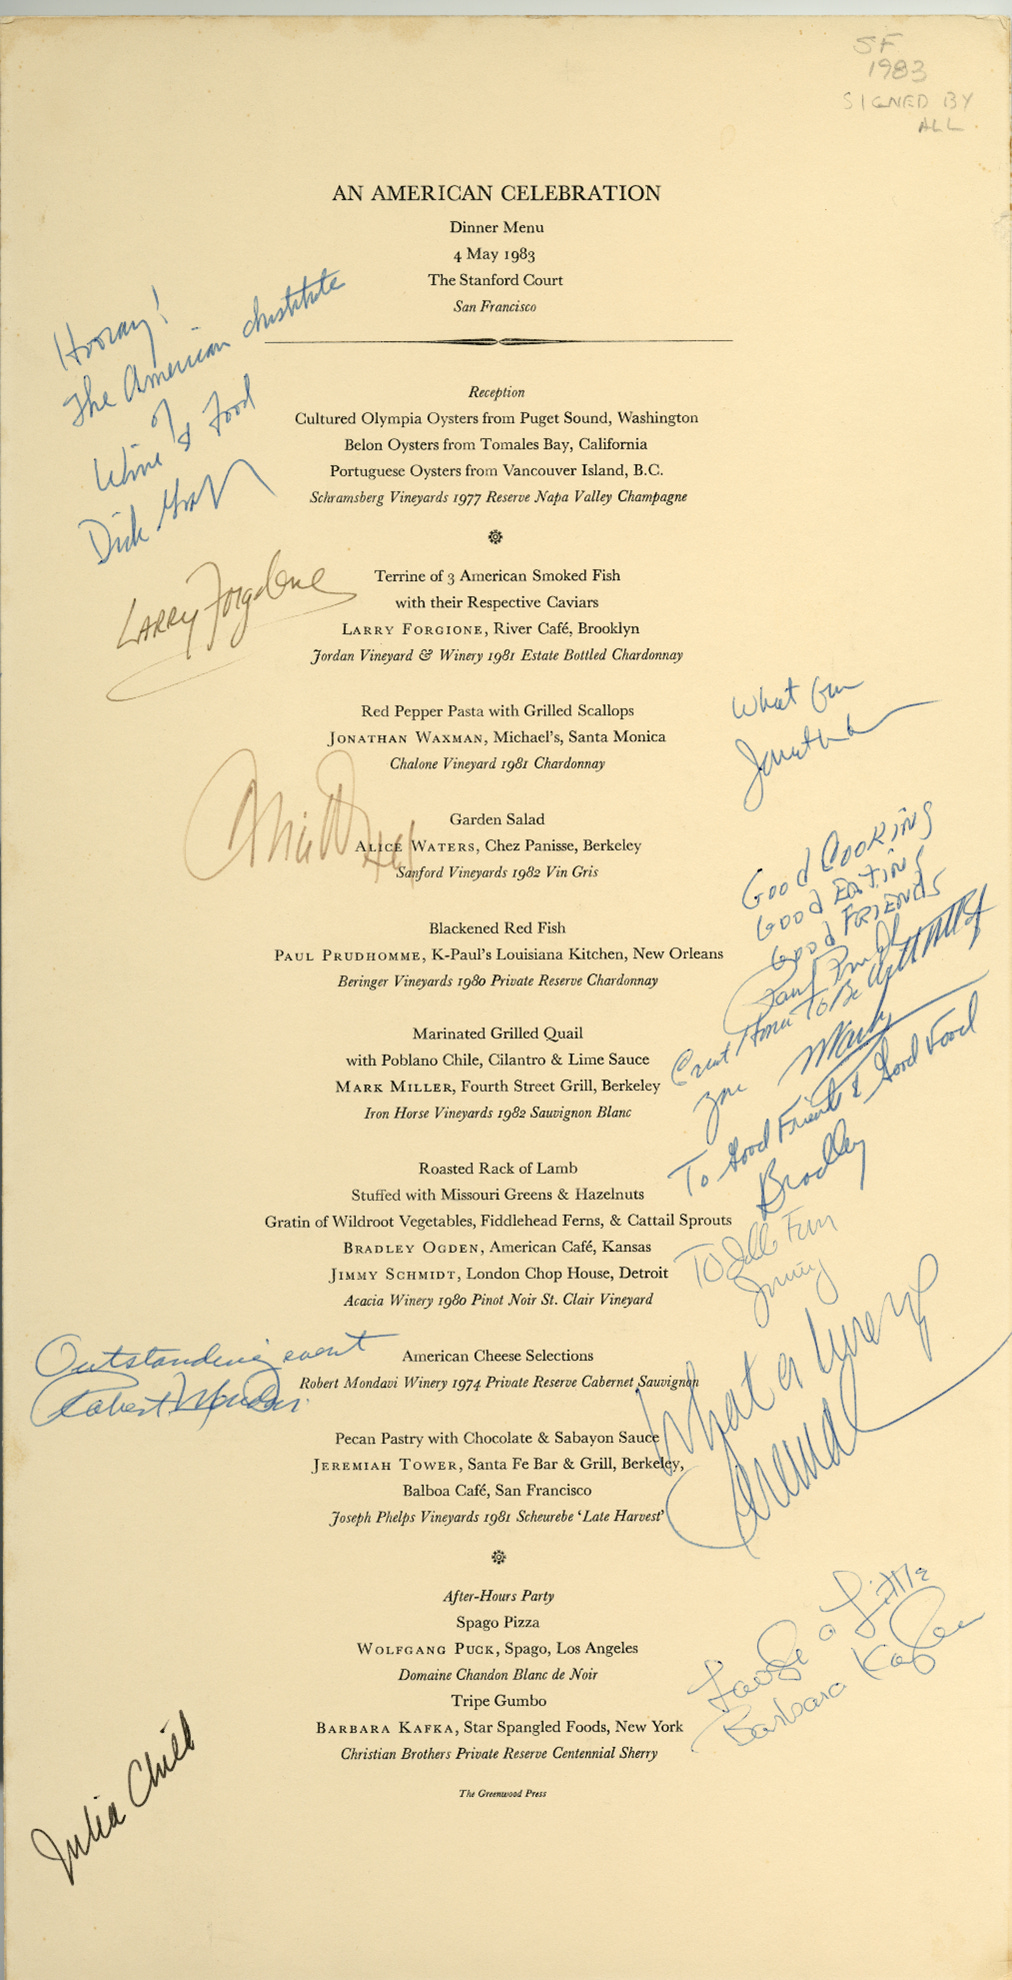 SF
1983
SIGNED BY
ALL
AN AMERICAN CELEBRATION
Dinner Menu
4 May 1983
The Stanford Court
San Francisco
Hooray!
The American Institute
of
Wine & Food
Dick
Reception
Cultured Olympia Oysters from Puget Sound, Washington
Belon Oysters from Tomales Bay, California
Portuguese Oysters from Vancouver Island, B.C.
Schramsberg Vineyards 1977 Reserve Napa Valley Champagne
Larry Forgione
Terrine of 3 American Smoked Fish
with their Respective Caviars
LARRY FORGIONE, River Café, Brooklyn
Jordan Vineyard & Winery 1981 Estate Bottled Chardonnay
Red Pepper Pasta with Grilled Scallops
JONATHAN WAXMAN, Michael's, Santa Monica
Chalone Vineyard 1981 Chardonnay
What fun
Jonathan
Garden Salad
ALICE WATERS, Chez Panisse, Berkeley
Sanford Vineyards 1982 Vin Gris
Alice Waters
Good Cooking
Good Eating
Good Friends
Paul Prudh
Blackened Red Fish
PAUL PRUDHOMME, K-Paul's Louisiana Kitchen, New Orleans
Beringer Vineyards 1980 Private Reserve Chardonnay
Great Time To Be With
you Mark
Marinated Grilled Quail
with Poblano Chile, Cilantro & Lime Sauce
MARK MILLER, Fourth Street Grill, Berkeley
Iron Horse Vineyards 1982 Sauvignon Blanc
To Good Friends & Good Food
Bradley
Roasted Rack of Lamb
Stuffed with Missouri Greens & Hazelnuts
Gratin of Wildroot Vegetables, Fiddlehead Ferns, & Cattail Sprouts
BRADLEY OGDEN, American Café, Kansas
JIMMY SCHMIDT, London Chop House, Detroit
Acacia Winery 1980 Pinot Noir St. Clair Vineyard
To Fun
Jimmy
Outstanding event
Robert Mondavi
American Cheese Selections
Robert Mondavi Winery 1974 Private Reserve Cabernet Sauvignon
What a
Jeremiah
Pecan Pastry with Chocolate & Sabayon Sauce
JEREMIAH TOWER, Santa Fe Bar & Grill, Berkeley,
Balboa Café, San Francisco
Joseph Phelps Vineyards 1981 Scheurebe 'Late Harvest'
After-Hours Party
Spago Pizza
WOLFGANG PUCK, Spago, Los Angeles
Domaine Chandon Blanc de Noir
Tripe Gumbo
BARBARA KAFKA, Star Spangled Foods, New York
Christian Brothers Private Reserve Centennial Sherry
a Little
Barbara Kafka
The Greenwood Press
Julia Child